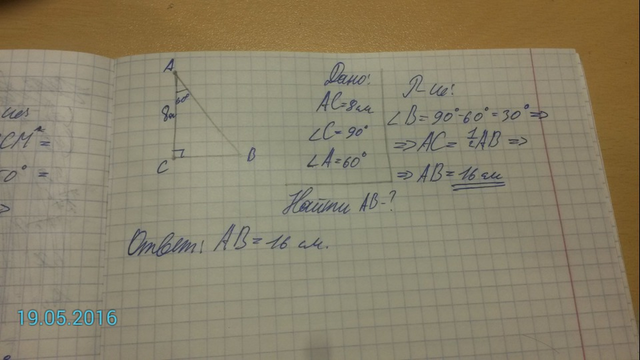 A
60°
8м
C
B
Дано:
AC=8см
∠C=90°
∠A=60°
Найти AB-?
Р-ие:
∠B=90°-60°=30°⇒
⇒AC=1/2AB⇒
⇒AB=16см
Ответ: AB=16 см.
CM²=
0°=
19.05.2016